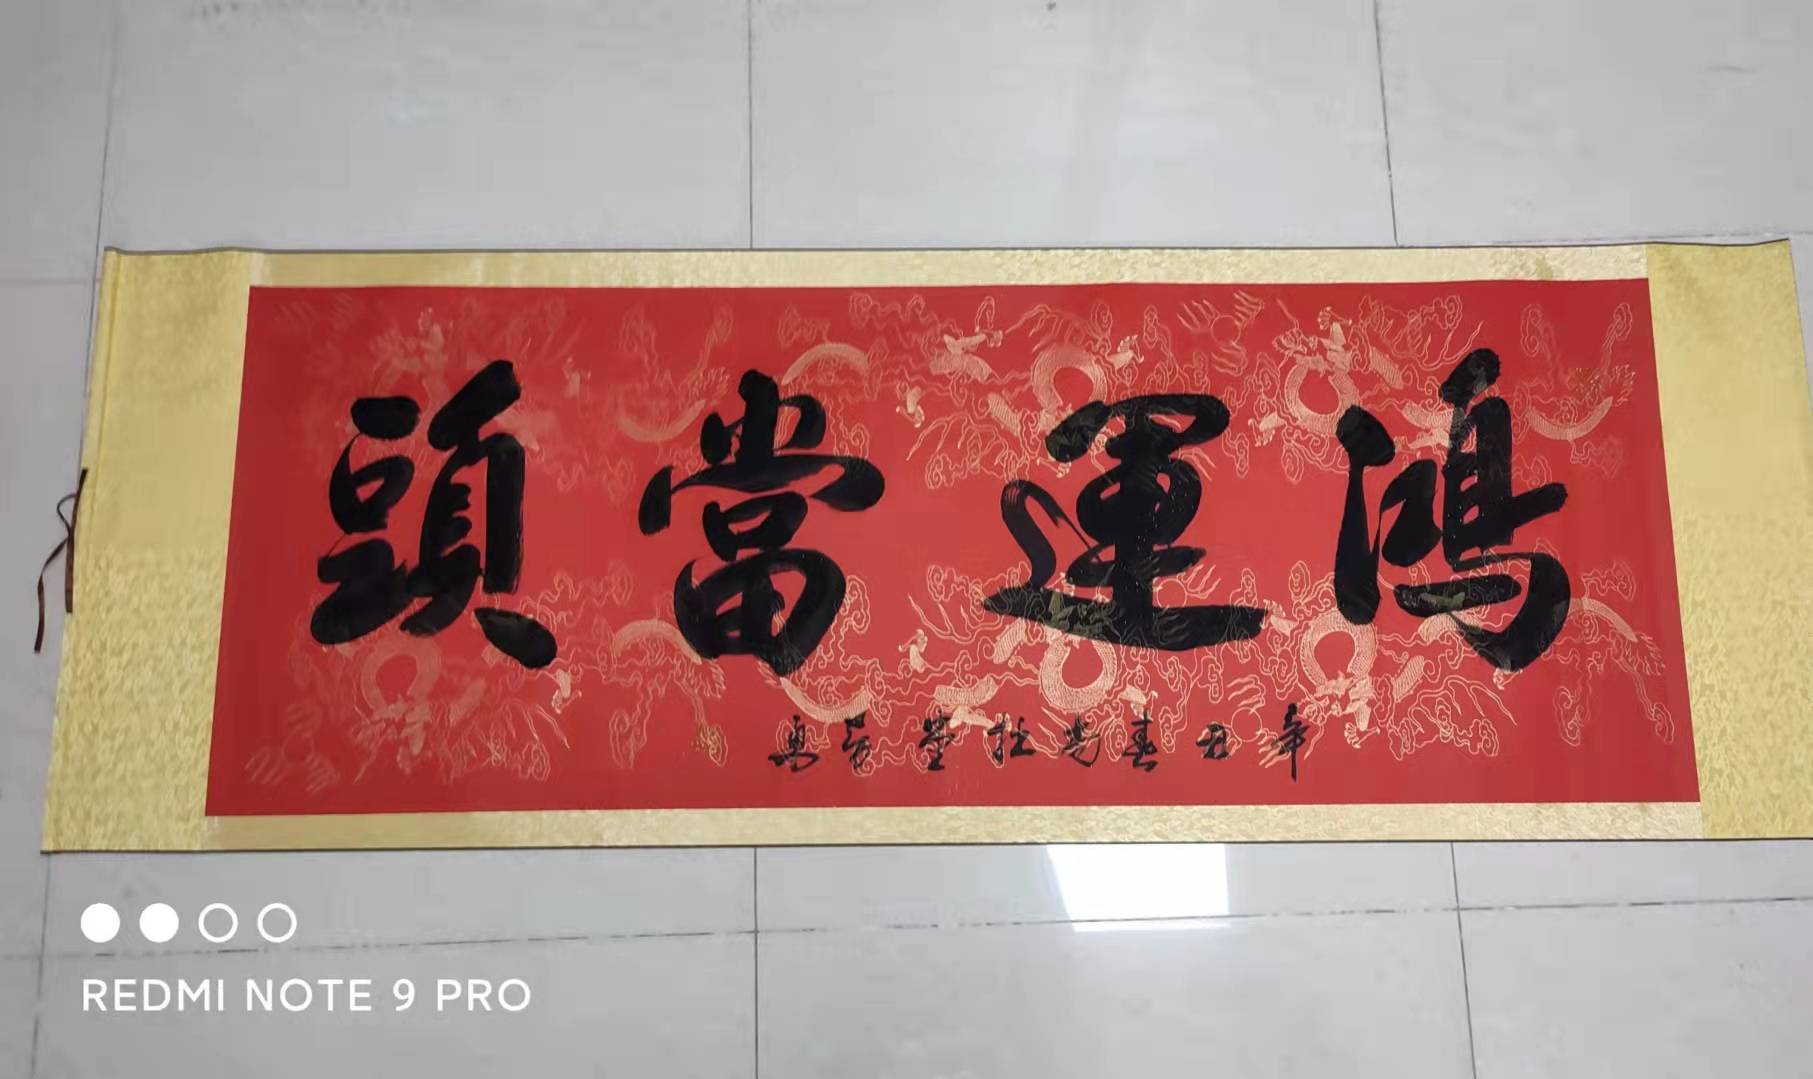 鴻運當頭
辛丑春
REDMI NOTE 9 PRO